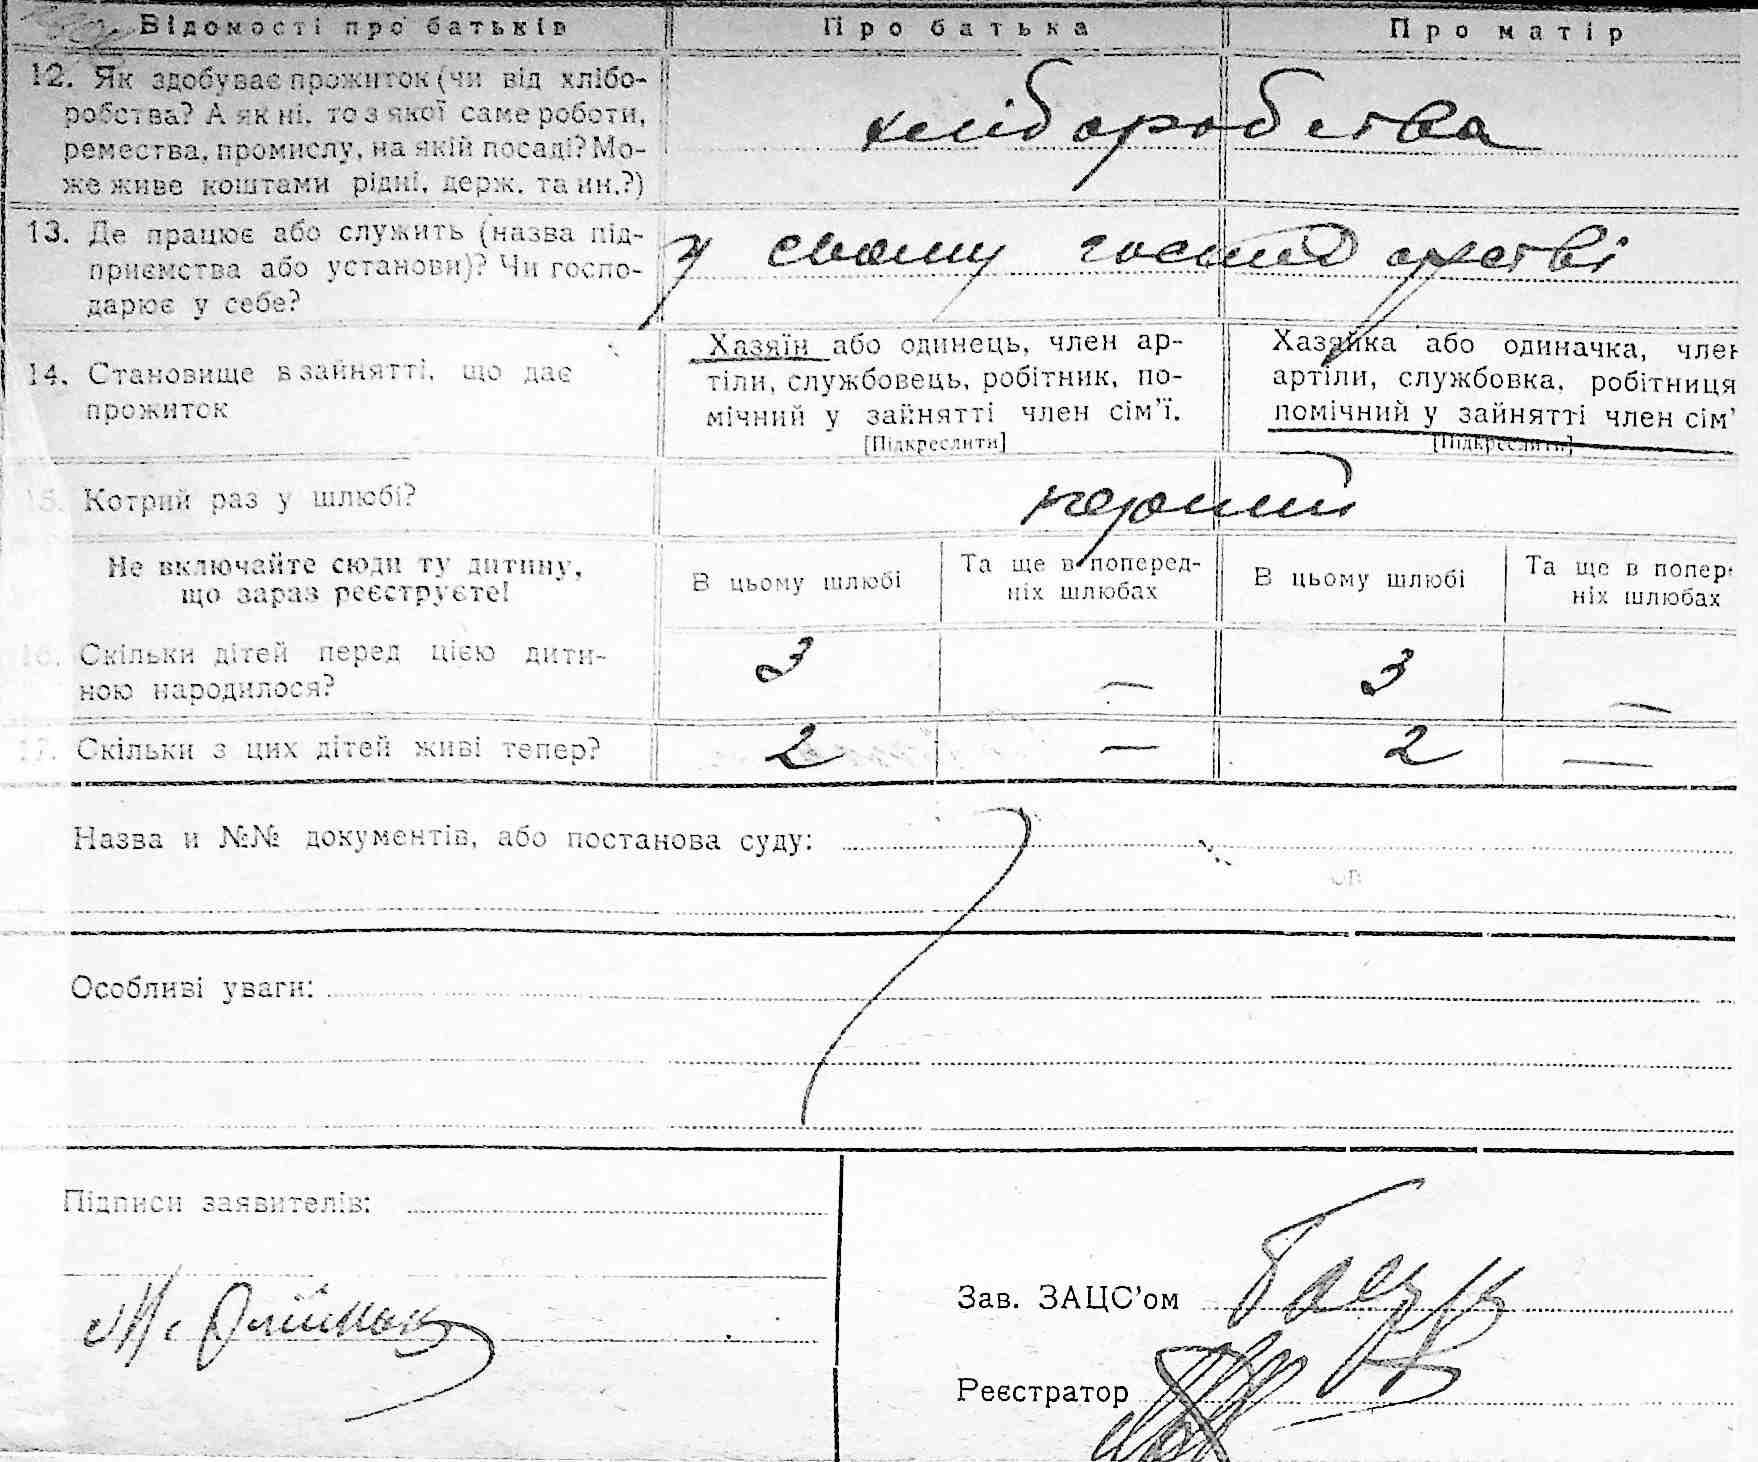 Відомості про батьків Про батька Про матір
12. Як здобуває прожиток (чи від хлібо-
робства? А як ні, то з якої саме роботи,
ремества, промислу, на якій посаді? Мо-
же живе коштами рідні, держ. та ин.?)
хліборобства
13. Де працює або служить (назва під-
приємства або установи)? Чи госпо-
дарює у себе?
у своєму господарстві
14. Становище в зайнятті, що дає
прожиток
Хазяїн або одинець, член ар-
тіли, службовець, робітник, по-
мічний у зайнятті член сім'ї.
[Підкреслити]
Хазяйка або одиначка, член
артіли, службовка, робітниця
помічний у зайнятті член сім'
[Підкреслити]
15. Котрий раз у шлюбі?
перший
Не включайте сюди ту дитину,
що зараз реєструєте!
В цьому шлюбі
Та ще в поперед-
ніх шлюбах
В цьому шлюбі
Та ще в попер
ніх шлюбах
16. Скільки дітей перед цією дити-
ною народилося?
3 — 3 —
17. Скільки з цих дітей живі тепер? 2 — 2 —
Назва и №№ документів, або постанова суду:
Особливі уваги:
Підписи заявителів:
М. Олійник
Зав. ЗАЦС'ом
Реєстратор